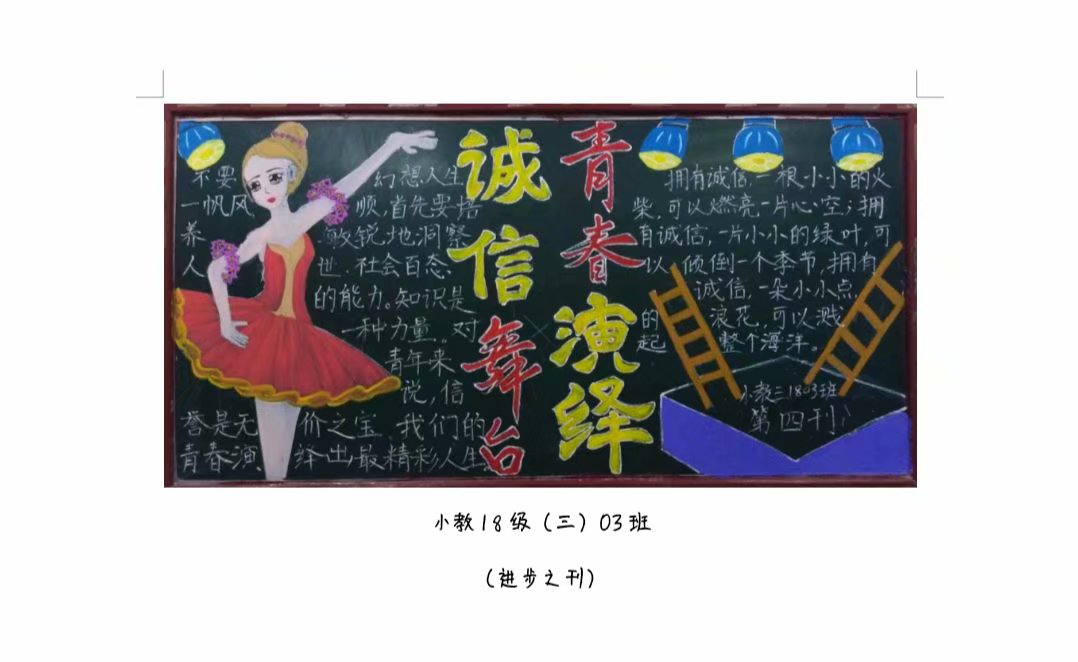 诚信舞台
青春演绎
不要幻想人生
一帆风顺,首先要培
养敏锐地洞察
人世、社会百态、
的能力。知识是
一种力量。对
青年来
说,信
誉是无价之宝,我们的
青春演绎出最精彩人生
拥有诚信,一根小小的火
柴,可以燃亮一片心空;拥
有诚信,一片小小的绿叶,可
以倾倒一个季节,拥有
诚信,一朵小小点
的浪花,可以溅
起整个海洋。
小教三1803班
第四刊!
小教18级（三）03班
(进步之刊)